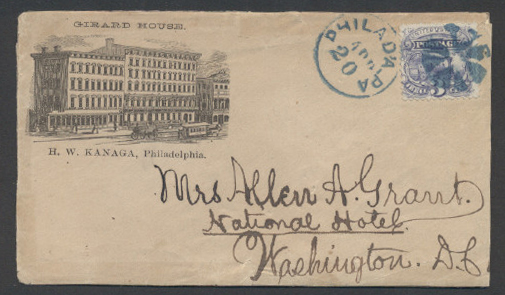 GIRARD HOUSE.
H. W. KANAGA, Philadelphia.
PHILADA. PA
APR
20
Mrs Allen A. Grant.
National Hotel.
Washington. D.C